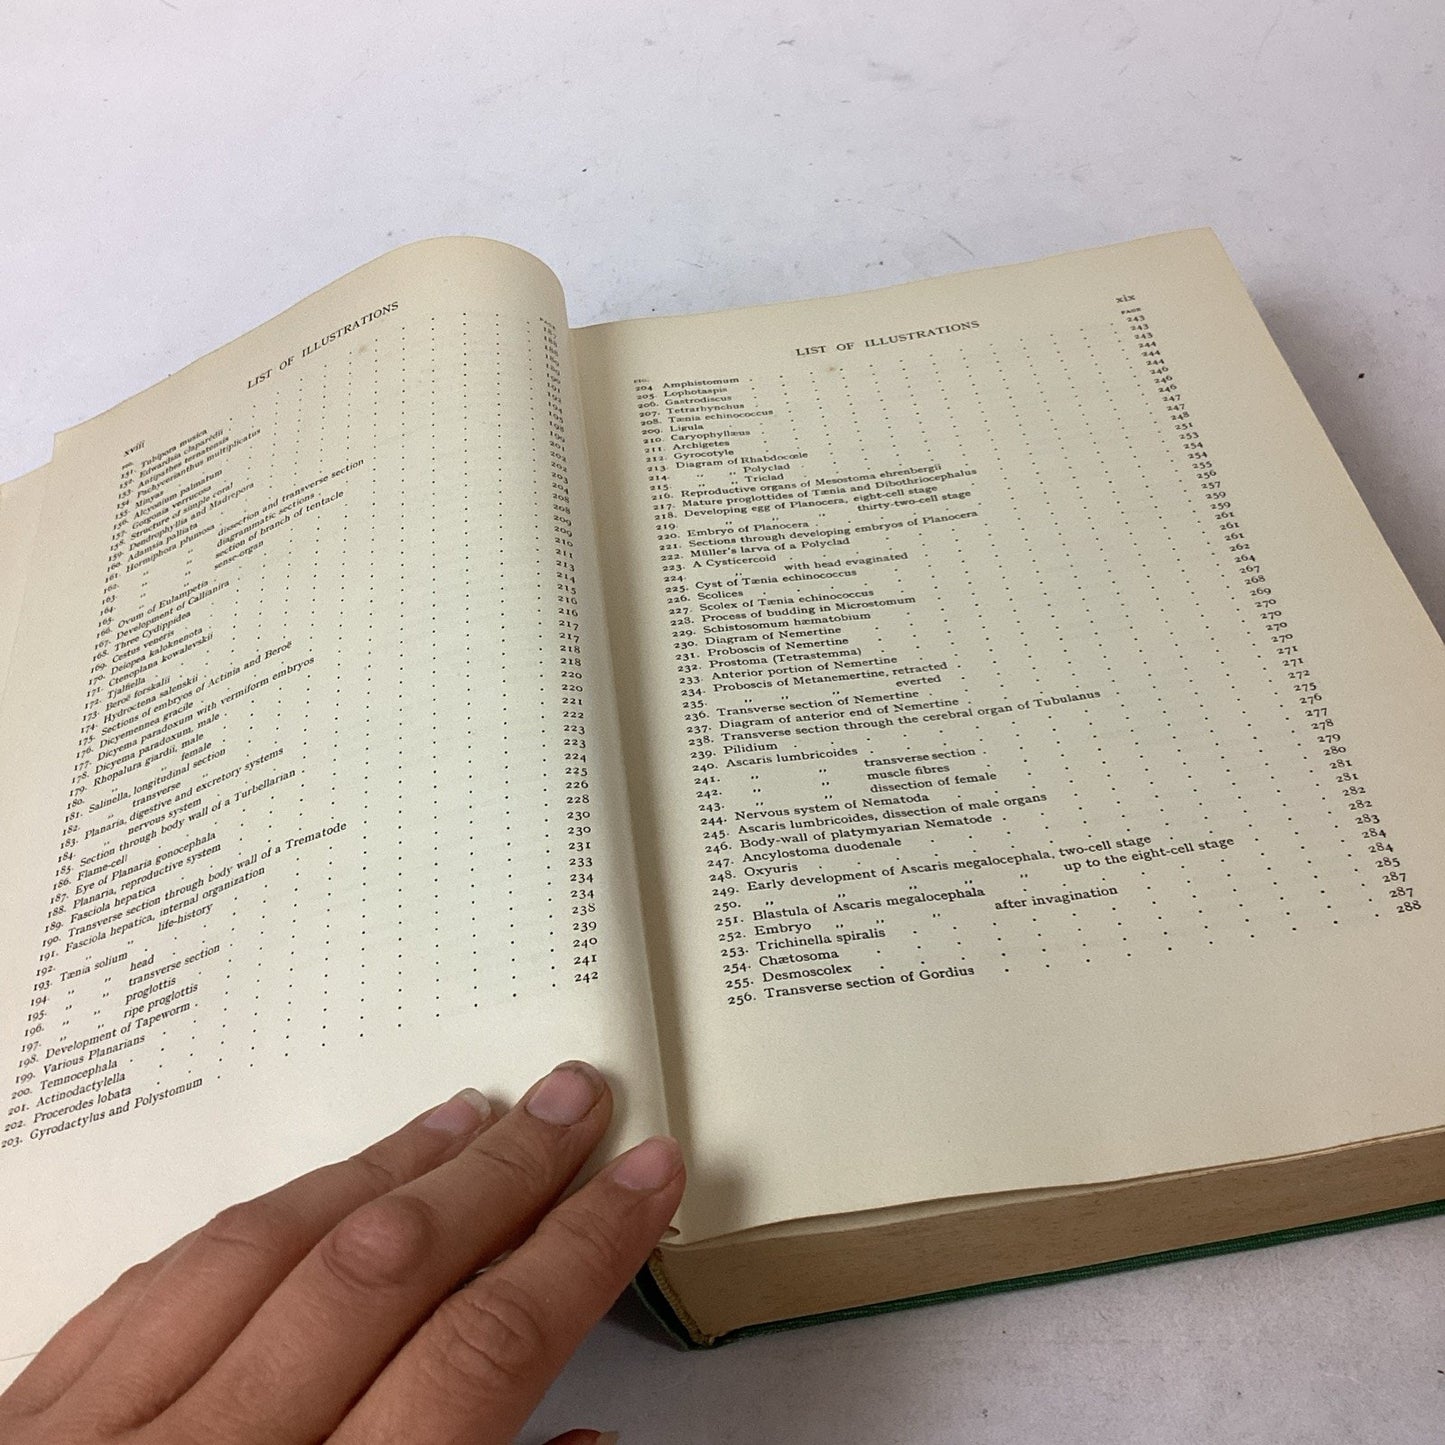 xviii LIST OF ILLUSTRATIONS
FIG. PAGE
151. Tubipora musica 187
152. Edwardsia claparédii 188
153. Antipathes ternatensis 188
154. Pachycerianthus multiplicatus 189
155. Minyas
156. Alcyonium palmatum
157. Gorgonia verrucosa
158. Structure of simple coral
159. Dendrophyllia and Madrepora
160. Adamsia palliata
161. Hormiphora plumosa dissection and transverse section
162. „ „ diagrammatic sections
163. „ „ section of branch of tentacle
164. „ „ sense-organ
165. Ovum of Eulampetia
166. Development of Callianira
167. Three Cydippidea
168. Cestus veneris
169. Deiopea kaloknenota
170. Ctenoplana kowalevskii
171. Tjalfiella
172. Beroë forskalii
173. Hydroctena salenskii
174. Sections of embryos of Actinia and Beroë
175. Dicyemennea gracile
176. Dicyema paradoxum with vermiform embryos
177. Dicyema paradoxum, male
178. Rhopalura giardii, male
179. „ „ female
180. Salinella, longitudinal section
181. „ transverse „
182. Planaria, digestive and excretory systems
183. „ nervous system
184. Section through body wall of a Turbellarian
185. Flame-cell
186. Eye of Planaria gonocephala
187. Planaria, reproductive system
188. Fasciola hepatica
189. Transverse section through body wall of a Trematode
190. Fasciola hepatica, internal organization
191. „ „ life-history
192. Tænia solium
193. „ „ head
194. „ „ transverse section
195. „ „ proglottis
196. „ „ ripe proglottis
197. Development of Tapeworm
198. Various Planarians
199. Temnocephala 239
200. Actinodactylella 240
202. Procerodes lobata 241
203. Gyrodactylus and Polystomum 242
LIST OF ILLUSTRATIONS xix
FIG. PAGE
204 Amphistomum 243
205. Lophotaspis 243
206. Gastrodiscus 243
207. Tetrarhynchus 244
208. Tænia echinococcus 244
209. Ligula 244
210. Caryophyllæus 246
211. Archigetes 246
212. Gyrocotyle 246
213. Diagram of Rhabdocœle 247
214. „ „ Polyclad 247
215. „ „ Triclad 248
216. Reproductive organs of Mesostoma ehrenbergii 251
217. Mature proglottides of Tænia and Dibothriocephalus 253
218. Developing egg of Planocera, eight-cell stage 254
219. „ „ „ thirty-two-cell stage 254
220. Embryo of Planocera 255
221. Sections through developing embryos of Planocera 256
222. Müller's larva of a Polyclad 257
223. A Cysticercoid 259
224. „ „ with head evaginated 259
225. Cyst of Tænia echinococcus 261
226. Scolices 261
227. Scolex of Tænia echinococcus 262
228. Process of budding in Microstomum 264
229. Schistosomum hæmatobium 267
230. Diagram of Nemertine 268
231. Proboscis of Nemertine 269
232. Prostoma (Tetrastemma) 270
233. Anterior portion of Nemertine 270
234. Proboscis of Metanemertine, retracted 270
235. „ „ „ everted 270
236. Transverse section of Nemertine 271
237. Diagram of anterior end of Nemertine 271
238. Transverse section through the cerebral organ of Tubulanus 272
239. Pilidium 275
240. Ascaris lumbricoides 276
241. „ „ transverse section 277
242. „ „ muscle fibres 278
243. „ „ dissection of female 279
244. Nervous system of Nematoda 280
245. Ascaris lumbricoides, dissection of male organs 281
246. Body-wall of platymyarian Nematode 281
247. Ancylostoma duodenale 282
248. Oxyuris 282
249. Early development of Ascaris megalocephala, two-cell stage 283
250. „ „ „ „ up to the eight-cell stage 284
251. Blastula of Ascaris megalocephala 284
252. Embryo „ „ „ after invagination 285
253. Trichinella spiralis 287
254. Chætosoma
255. Desmoscolex 287
256. Transverse section of Gordius 288